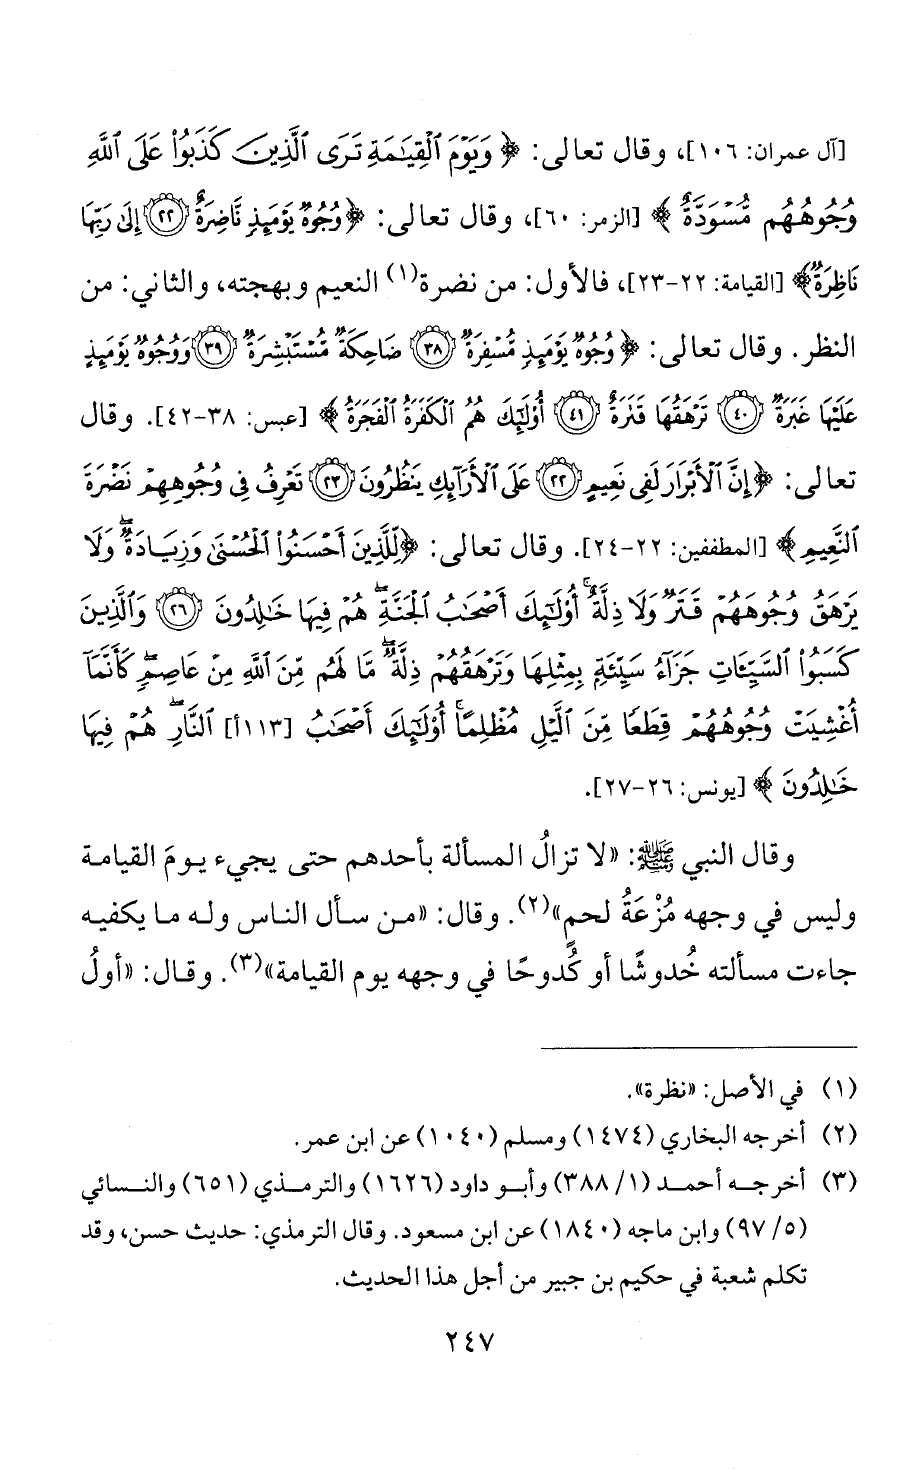 [آل عمران: ١٠٦]، وقال تعالى: ﴿ وَيَوْمَ ٱلْقِيَٰمَةِ تَرَى ٱلَّذِينَ كَذَبُوا۟ عَلَى ٱللَّهِ
وُجُوهُهُم مُّسْوَدَّةٌ ﴾ [الزمر: ٦٠]، وقال تعالى: ﴿وُجُوهٌ يَوْمَئِذٍ نَّاضِرَةٌ ٢٢ إِلَىٰ رَبِّهَا
نَاظِرَةٌ﴾ [القيامة: ٢٢-٢٣]، فالأول: من نضرة(١) النعيم وبهجته، والثاني: من
النظر. وقال تعالى: ﴿ وُجُوهٌ يَوْمَئِذٍ مُّسْفِرَةٌ ٣٨ ضَاحِكَةٌ مُّسْتَبْشِرَةٌ ٣٩ وَوُجُوهٌ يَوْمَئِذٍ
عَلَيْهَا غَبَرَةٌ ٤٠ تَرْهَقُهَا قَتَرَةٌ ٤١ أُو۟لَٰٓئِكَ هُمُ ٱلْكَفَرَةُ ٱلْفَجَرَةُ ﴾ [عبس: ٣٨-٤٢]. وقال
تعالى: ﴿إِنَّ ٱلْأَبْرَارَ لَفِى نَعِيمٍ ٢٢ عَلَى ٱلْأَرَآئِكِ يَنظُرُونَ ٢٣ تَعْرِفُ فِى وُجُوهِهِمْ نَضْرَةَ
ٱلنَّعِيمِ ﴾ [المطففين: ٢٢-٢٤]. وقال تعالى: ﴿لِّلَّذِينَ أَحْسَنُوا۟ ٱلْحُسْنَىٰ وَزِيَادَةٌ ۖ وَلَا
يَرْهَقُ وُجُوهَهُمْ قَتَرٌ وَلَا ذِلَّةٌ ۚ أُو۟لَٰٓئِكَ أَصْحَٰبُ ٱلْجَنَّةِ ۖ هُمْ فِيهَا خَٰلِدُونَ ٢٦ وَٱلَّذِينَ
كَسَبُوا۟ ٱلسَّيِّـَٔاتِ جَزَآءُ سَيِّئَةٍۭ بِمِثْلِهَا وَتَرْهَقُهُمْ ذِلَّةٌ ۖ مَّا لَهُم مِّنَ ٱللَّهِ مِنْ عَاصِمٍ ۖ كَأَنَّمَآ
أُغْشِيَتْ وُجُوهُهُمْ قِطَعًا مِّنَ ٱلَّيْلِ مُظْلِمًا ۚ أُو۟لَٰٓئِكَ أَصْحَٰبُ [١١٣أ] ٱلنَّارِ ۖ هُمْ فِيهَا
خَٰلِدُونَ ﴾ [يونس: ٢٦-٢٧].
وقال النبي ﷺ: «لا تزالُ المسألة بأحدهم حتى يجيء يومَ القيامة
وليس في وجهه مُزْعَةُ لحمٍ»(٢). وقال: «من سأل الناس وله ما يكفيه
جاءت مسألته خُدوشًا أو كُدوحًا في وجهه يوم القيامة»(٣). وقال: «أولُ
(١) في الأصل: «نظرة».
(٢) أخرجه البخاري (١٤٧٤) ومسلم (١٠٤٠) عن ابن عمر.
(٣) أخرجه أحمد (١/ ٣٨٨) وأبو داود (١٦٢٦) والترمذي (٦٥١) والنسائي
(٥/ ٩٧) وابن ماجه (١٨٤٠) عن ابن مسعود. وقال الترمذي: حديث حسن، وقد
تكلم شعبة في حكيم بن جبير من أجل هذا الحديث.
٢٤٧